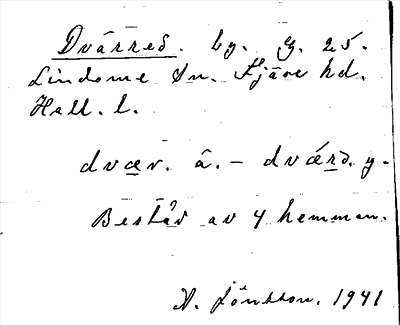 Dvärred. by. G. 25.
Lindome sn. Fjäre hd.
Hall. l.
dvær. â. – dvǽrd. y.
Består av 4 hemman.
A. Jönsson. 1941